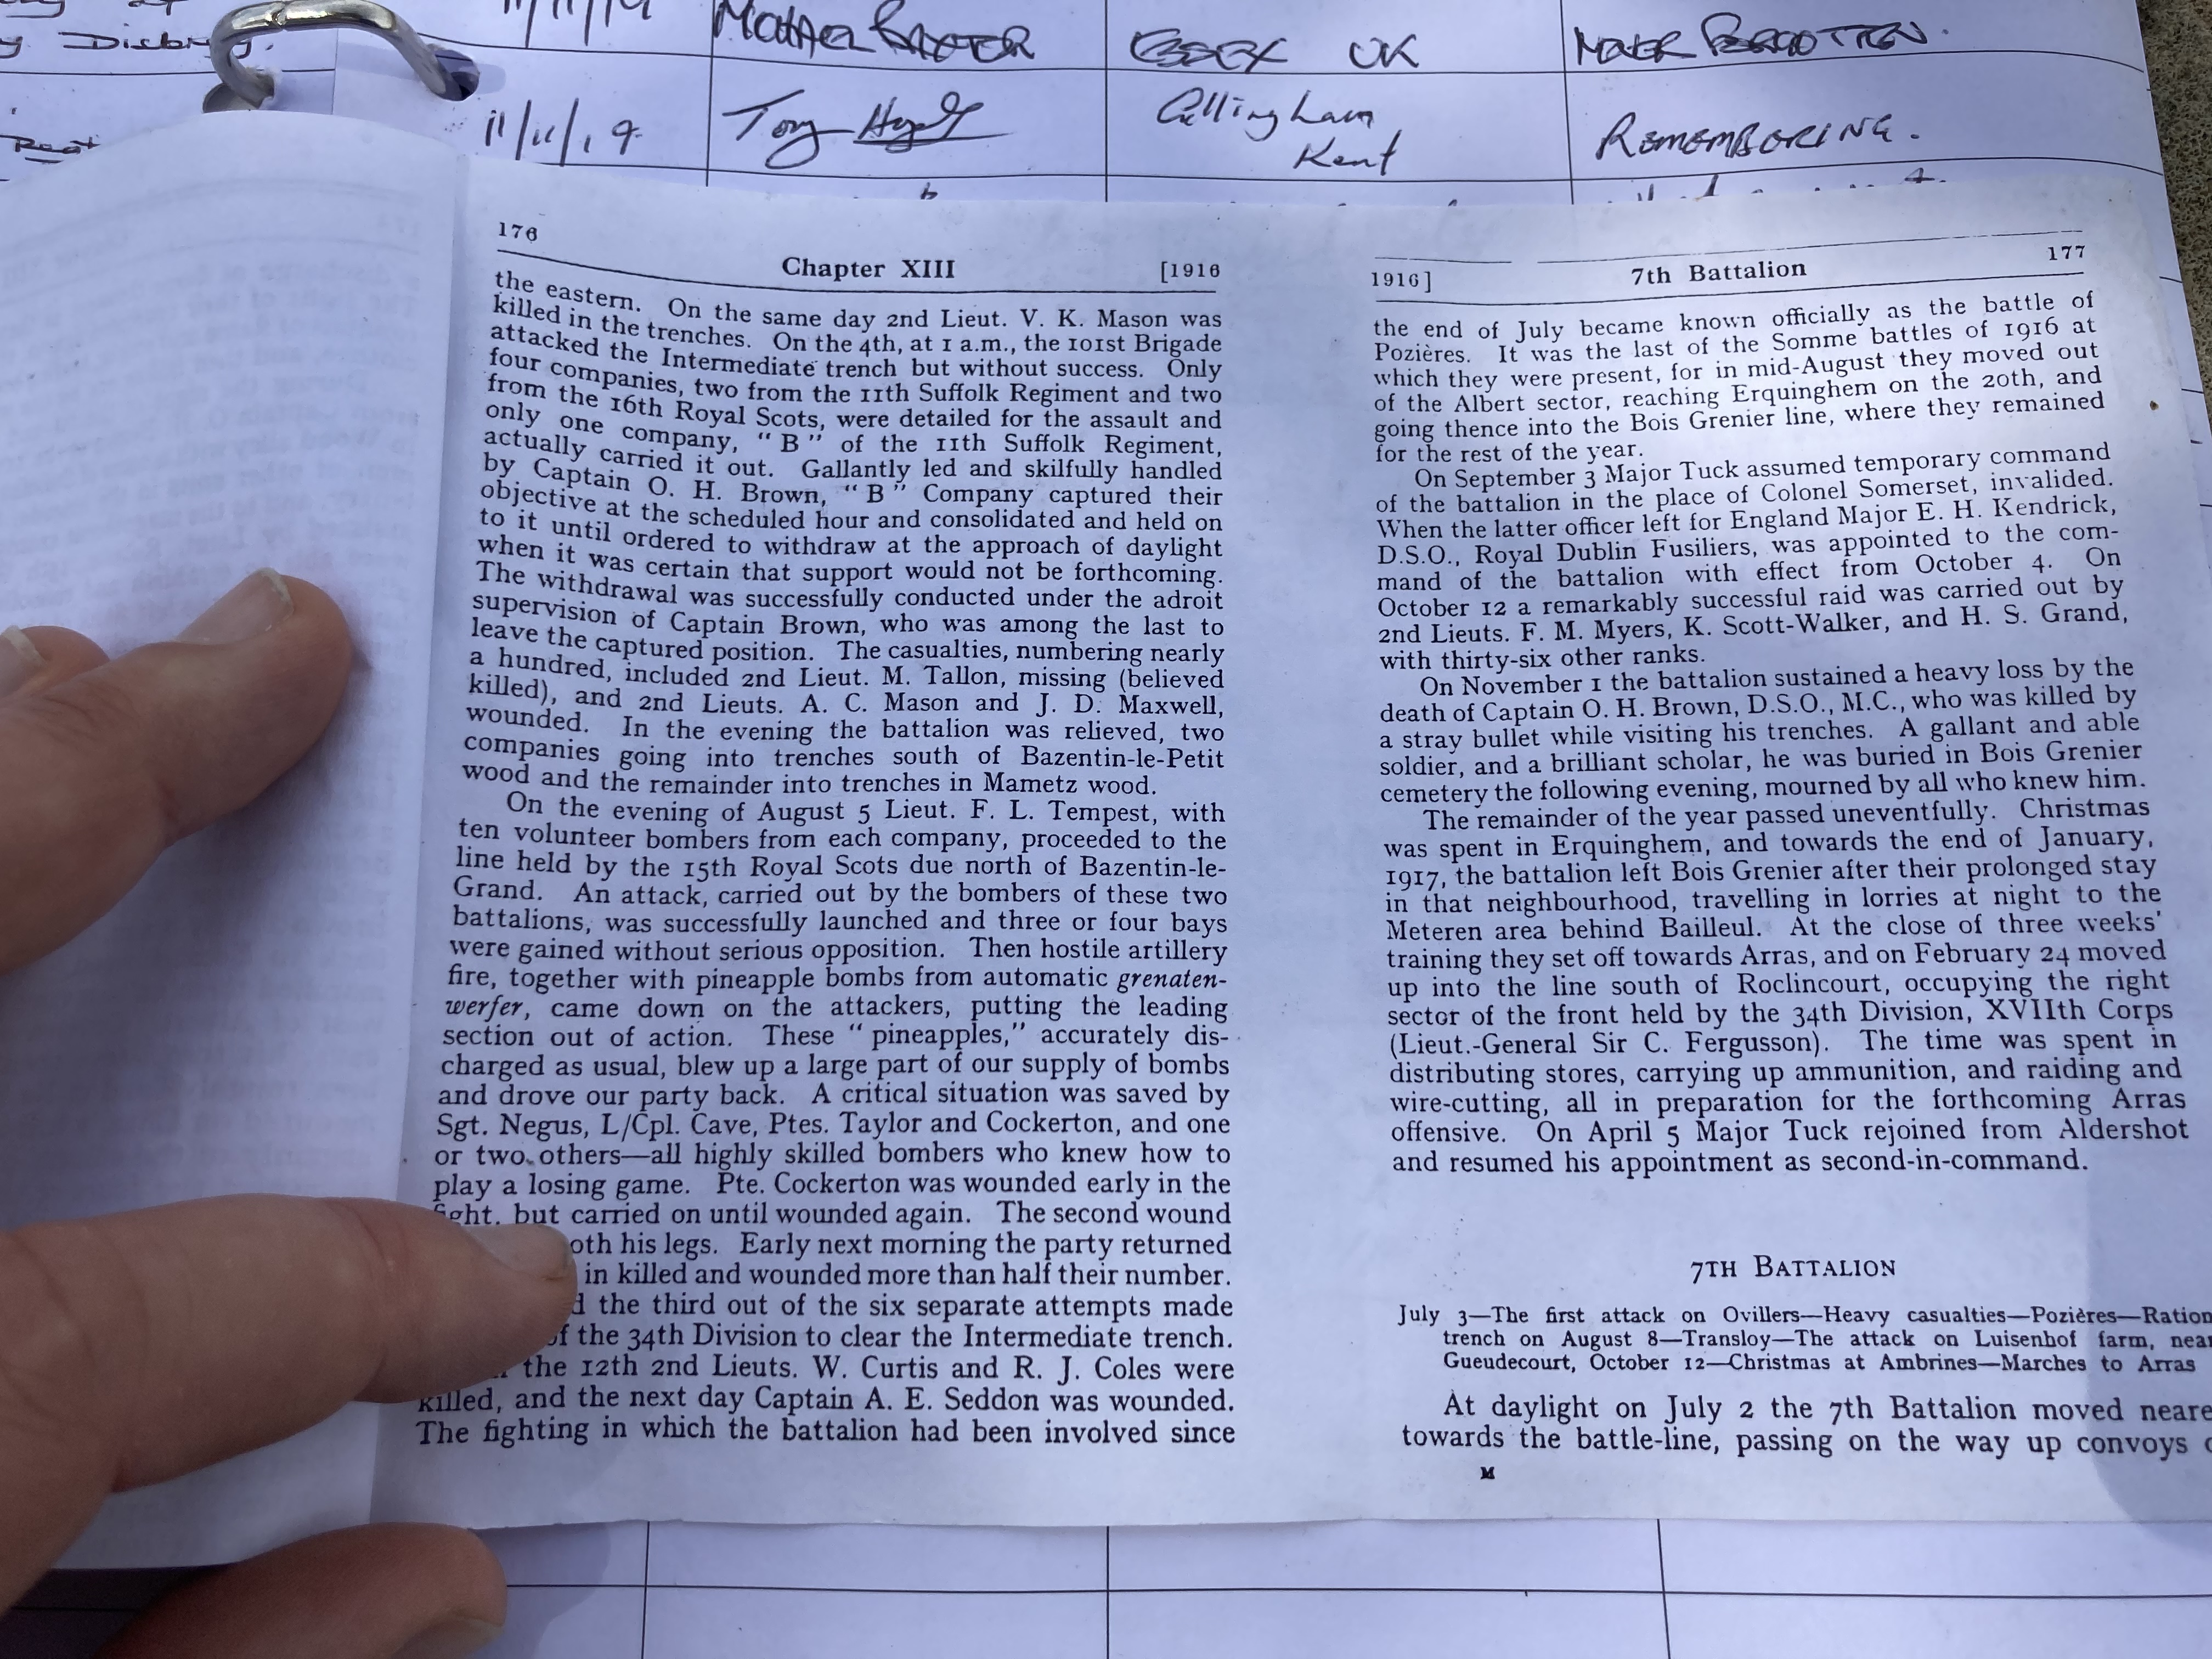 y Disbry.
11/11/19
ESSEX UK
NEVER FORGOTTEN.
11/11/19
Tony
Gillingham
Kent
REMEMBORING.
176
Chapter XIII
[1916
the eastern. On the same day 2nd Lieut. V. K. Mason was
killed in the trenches. On the 4th, at 1 a.m., the 101st Brigade
attacked the Intermediate trench but without success. Only
four companies, two from the 11th Suffolk Regiment and two
from the 16th Royal Scots, were detailed for the assault and
only one company, “B” of the 11th Suffolk Regiment,
actually carried it out. Gallantly led and skilfully handled
by Captain O. H. Brown, “B” Company captured their
objective at the scheduled hour and consolidated and held on
to it until ordered to withdraw at the approach of daylight
when it was certain that support would not be forthcoming.
The withdrawal was successfully conducted under the adroit
supervision of Captain Brown, who was among the last to
leave the captured position. The casualties, numbering nearly
a hundred, included 2nd Lieut. M. Tallon, missing (believed
killed), and 2nd Lieuts. A. C. Mason and J. D. Maxwell,
wounded. In the evening the battalion was relieved, two
companies going into trenches south of Bazentin-le-Petit
wood and the remainder into trenches in Mametz wood.
On the evening of August 5 Lieut. F. L. Tempest, with
ten volunteer bombers from each company, proceeded to the
line held by the 15th Royal Scots due north of Bazentin-le-
Grand. An attack, carried out by the bombers of these two
battalions, was successfully launched and three or four bays
were gained without serious opposition. Then hostile artillery
fire, together with pineapple bombs from automatic grenaten-
werfer, came down on the attackers, putting the leading
section out of action. These “pineapples,” accurately dis-
charged as usual, blew up a large part of our supply of bombs
and drove our party back. A critical situation was saved by
Sgt. Negus, L/Cpl. Cave, Ptes. Taylor and Cockerton, and one
or two others—all highly skilled bombers who knew how to
play a losing game. Pte. Cockerton was wounded early in the
fight, but carried on until wounded again. The second wound
oth his legs. Early next morning the party returned
in killed and wounded more than half their number.
the third out of the six separate attempts made
of the 34th Division to clear the Intermediate trench.
the 12th 2nd Lieuts. W. Curtis and R. J. Coles were
killed, and the next day Captain A. E. Seddon was wounded.
The fighting in which the battalion had been involved since
1916]
7th Battalion
177
the end of July became known officially as the battle of
Pozières. It was the last of the Somme battles of 1916 at
which they were present, for in mid-August they moved out
of the Albert sector, reaching Erquinghem on the 20th, and
going thence into the Bois Grenier line, where they remained
for the rest of the year.
On September 3 Major Tuck assumed temporary command
of the battalion in the place of Colonel Somerset, invalided.
When the latter officer left for England Major E. H. Kendrick,
D.S.O., Royal Dublin Fusiliers, was appointed to the com-
mand of the battalion with effect from October 4. On
October 12 a remarkably successful raid was carried out by
2nd Lieuts. F. M. Myers, K. Scott-Walker, and H. S. Grand,
with thirty-six other ranks.
On November 1 the battalion sustained a heavy loss by the
death of Captain O. H. Brown, D.S.O., M.C., who was killed by
a stray bullet while visiting his trenches. A gallant and able
soldier, and a brilliant scholar, he was buried in Bois Grenier
cemetery the following evening, mourned by all who knew him.
The remainder of the year passed uneventfully. Christmas
was spent in Erquinghem, and towards the end of January,
1917, the battalion left Bois Grenier after their prolonged stay
in that neighbourhood, travelling in lorries at night to the
Meteren area behind Bailleul. At the close of three weeks’
training they set off towards Arras, and on February 24 moved
up into the line south of Roclincourt, occupying the right
sector of the front held by the 34th Division, XVIIth Corps
(Lieut.-General Sir C. Fergusson). The time was spent in
distributing stores, carrying up ammunition, and raiding and
wire-cutting, all in preparation for the forthcoming Arras
offensive. On April 5 Major Tuck rejoined from Aldershot
and resumed his appointment as second-in-command.
7TH BATTALION
July 3—The first attack on Ovillers—Heavy casualties—Pozières—Ration
trench on August 8—Transloy—The attack on Luisenhof farm, near
Gueudecourt, October 12—Christmas at Ambrines—Marches to Arras
At daylight on July 2 the 7th Battalion moved neare
towards the battle-line, passing on the way up convoys
M